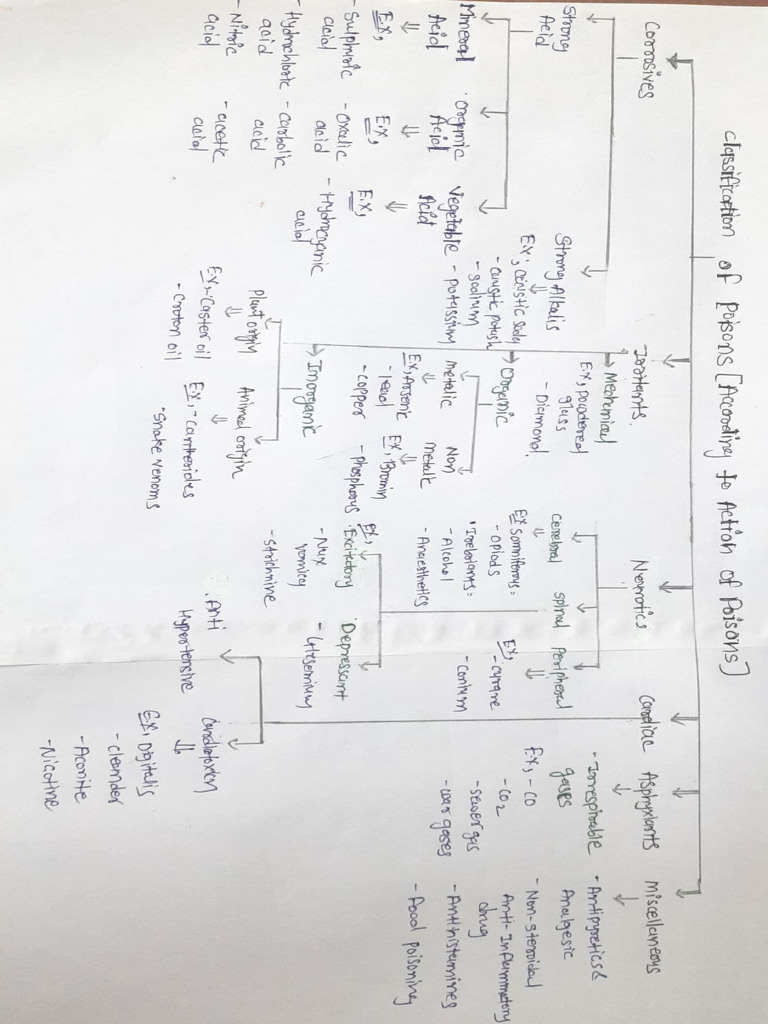 Classification of Poisons [According to Action of Poisons]
Corrosives
Irritants.
Neurotics
Cardiac
Asphyxiants
Miscellaneous
Strong
Acid
Strong Alkalis
Ex, caustic soda
- caustic potash
- sodium
- potassium
Mineral
Acid
Ex,
- Sulphuric
acid
- Hydrochloric
acid
- Nitric
acid
Organic
Acid
Ex,
- Oxalic
acid
- carbolic
acid
- acetic
acid
Vegetable
Acid
Ex,
- Hydrocyanic
acid
Mechanical
Ex, powdered
glass
- Diamond.
Organic
metallic
Ex, Arsenic
- lead
- copper
Non
metalic
Ex, Bromin
- Phosphorus
Inorganic
Plant origin
Ex, - Caster oil
- Croton oil
Animal origin
Ex, - Cantherides
- Snake venoms
Cerebral
Ex Somniferous =
- Opiods
- Inebriants =
- Alcohol
- Anaesthetics
Spinal
Peripheral
Ex,
- Curare
- Conium
Excitatory
Ex,
- Nux
vomica
- strichnine
Depressant
- Gelsemium
Anti
Hypertensive
Cardiotoxien
Ex, Digitalis
- oleander
- Aconite
- Nicotine
- Irrespirable
gases
Ex, - CO
- CO2
- sewer gas
- war gases
- Antipyretics &
Analgesic
- Non-steroidal
Anti-Inflammatory
drug
- Antihistamines
- Food poisoning